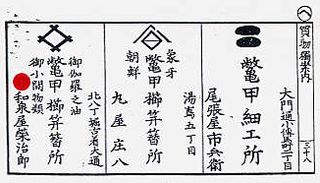 買物獨案内
三十八
大門通小傳馬町二丁目
鼈甲細工所
尾張屋市兵衛
湯嶌五丁目
象牙
朝鮮
鼈甲櫛笄簪所
丸屋庄八
北八丁堀
鼈甲櫛笄簪所
御伽羅之油
御小間物類
和泉屋榮治郎